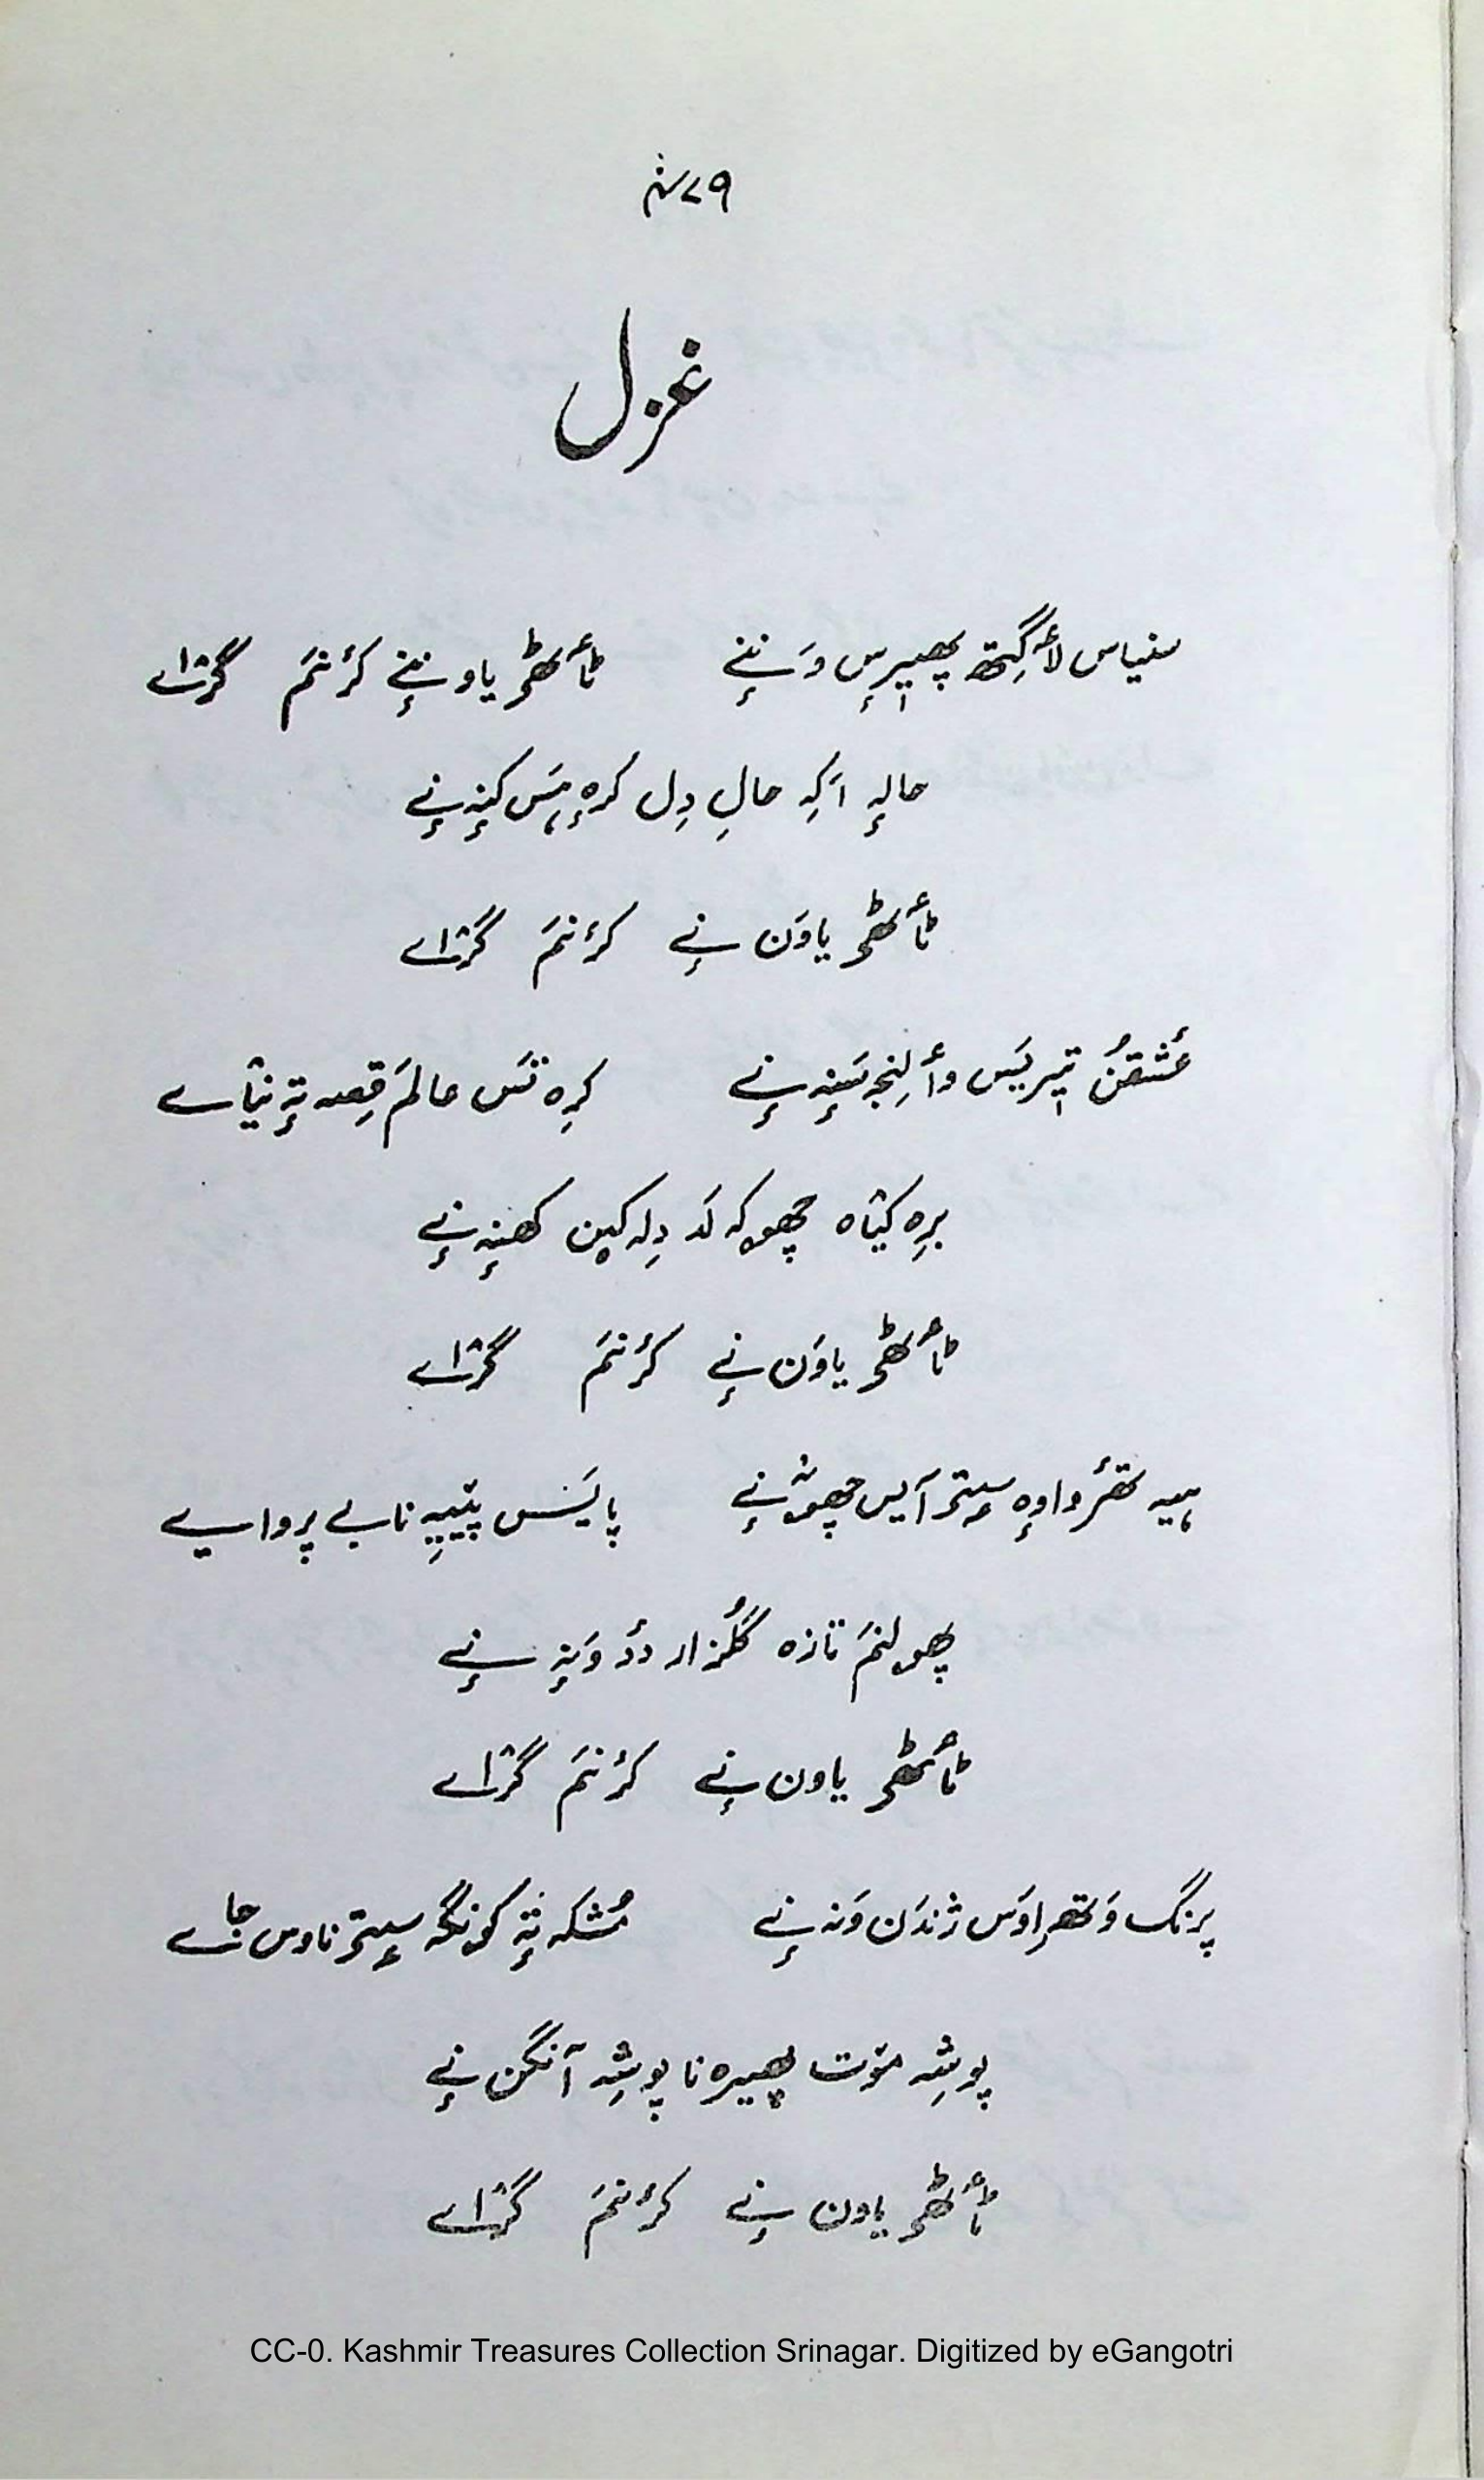 ۲۷۹
غزل
سنیاس لٲگِتھ پھیٖرِس وَنہٕ نے ٹٲٹھۍ یاونہٕ نے کٔرنَم گژاے
حالہٕ اَکہِ حالِ دِل کرٕہ ہَس کنہٕ نے
ٹٲٹھۍ یاوَن نے کٔرنَم گژاے
عٔشقُن تیٖر یَس وٲلِنجہِ سَنہٕ نے کرِہ تَس عالَم قِصہ تہٕ نیاے
برِہ کیاہ چھوکہ لَد دِلہ کین کھنہٕ نے
ٹٲٹھۍ یاوَن نے کٔرنَم گژاے
ہیہ تھٔر واوٕہ سٟتۍ آیس چھونے پایَس پیٚیہِ نا بے پرواے
پھولنَم تازہ گُلزار دٔد وَنہٕ نے
ٹٲٹھۍ یاون نے کٔرنَم گژاے
پرنگ وَتھرٲوَس ژندَن وَنہ نے مُشکہ تہٕ کونگہ سٟتۍ ناوس جاے
پوشہِ موٚت پھیرِہ نا پوشہِ آنگن نے
ٹٲٹھۍ یاون نے کٔرنَم گژاے
CC-0. Kashmir Treasures Collection Srinagar. Digitized by eGangotri